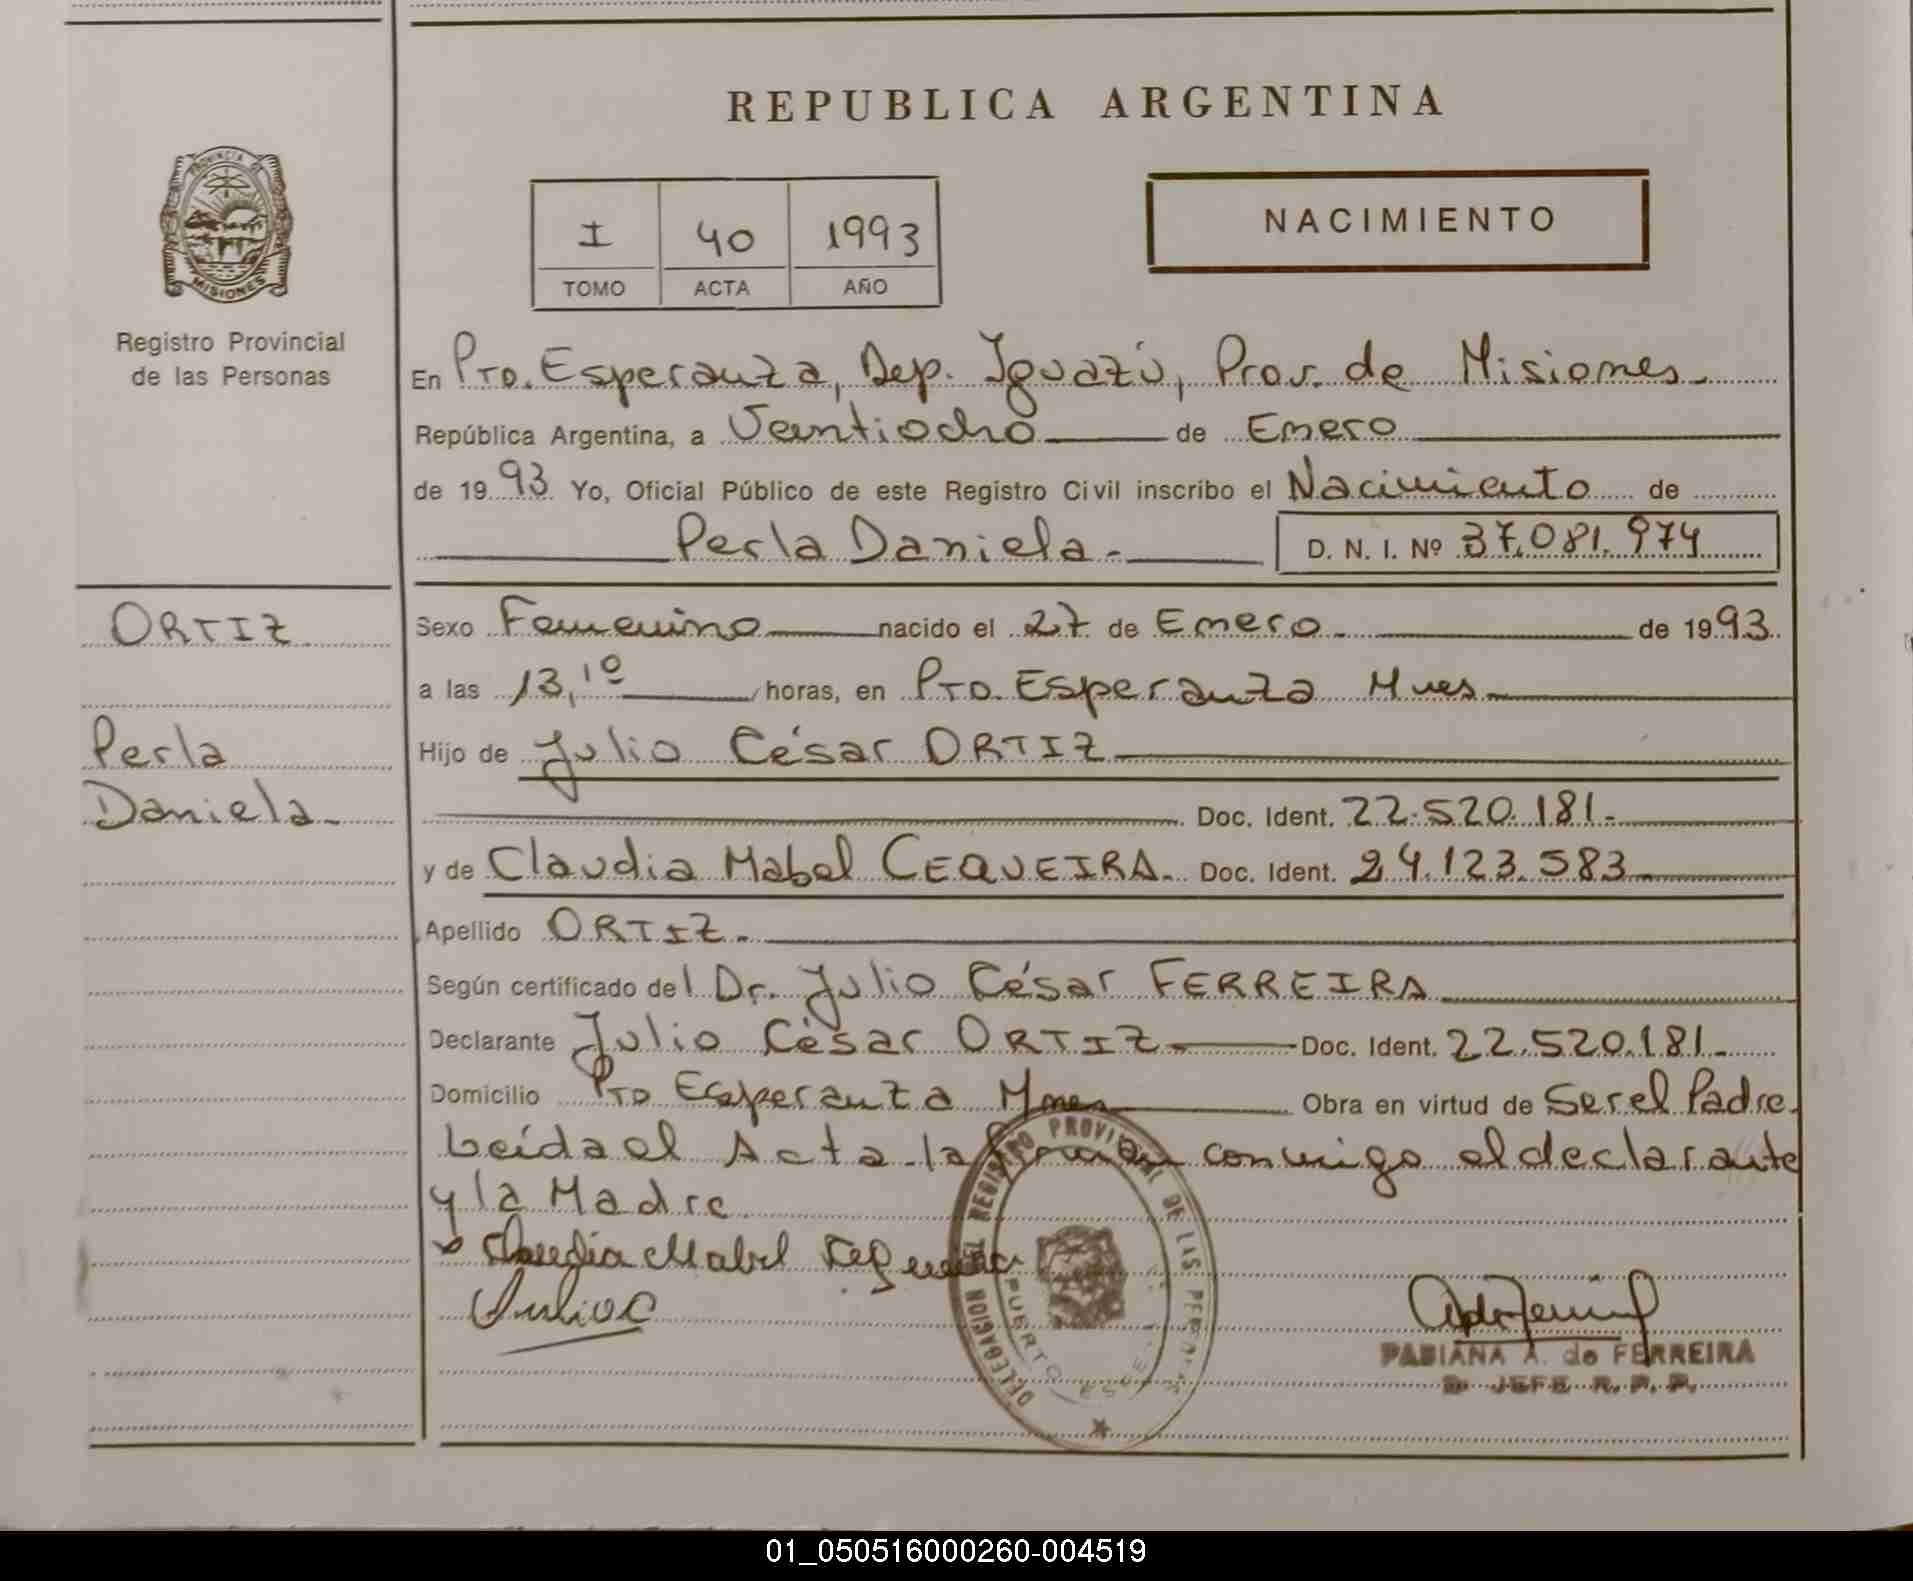 REPUBLICA ARGENTINA
PROVINCIA DE
MISIONES
Registro Provincial
de las Personas
I 40 1993
TOMO ACTA AÑO
NACIMIENTO
En Pto. Esperanza, Dep. Iguazú, Prov. de Misiones.
República Argentina, a Veintiocho de Enero
de 1993 Yo, Oficial Público de este Registro Civil inscribo el Nacimiento de
Perla Daniela. D. N. I. Nº 37.081.974
ORTIZ
Perla
Daniela.
Sexo Femenino nacido el 27 de Enero de 1993.
a las 13,10 horas, en Pto. Esperanza Mnes.
Hijo de Julio César ORTIZ
Doc. Ident. 22.520.181.
y de Claudia Mabel CEQUEIRA. Doc. Ident. 24.123.583
Apellido ORTIZ.
Según certificado del Dr. Julio César FERREIRA
Declarante Julio César ORTIZ Doc. Ident. 22.520.181.
Domicilio Pto Esperanza Mnes Obra en virtud de Ser el Padre.
Leída el Acta la firman conmigo el declarante
y la Madre
Claudia Mabel
DELEGACION DEL REGISTRO PROVINCIAL DE LAS
PUERTO
FABIANA A. de FERREIRA
JEFE R. P. P.
01_050516000260-004519